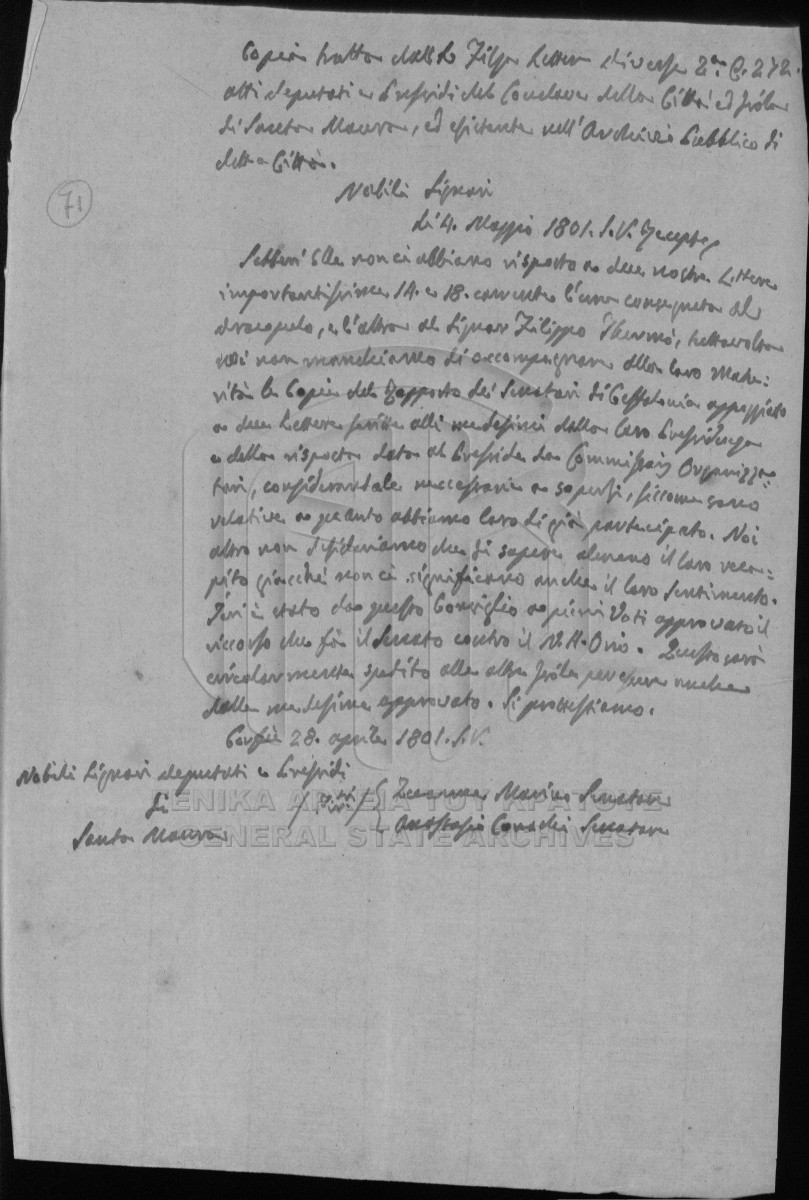 Copia tratta dalla Filza Lettere diverse 2da C. 272.
atti deputati e Presidi del Conclave della Città ed Isola
di Santa Maura, ed esistente nell'Archivio Pubblico di
detta Città.
71
Nobili Signori
di 4. Maggio 1801. S.V. Recepta
Sebben Elle non ci abbiano risposto a due nostre Lettere
importantissime 14. e 18. corrente l'una consegnata al
e l'altra al Signor Filippo
noi non manchiamo di accompagnare alla loro Matu:
rità la Copia del Rapporto dei Senatori di Ceffalonia appoggiato
a due Lettere scritte alli medesimi dalla loro Presidenza
e della risposta data al Preside da Commissarj Organizza=
tori, considerandole necessarie a sapersi, siccome sono
relative a quanto abbiamo loro di già partecipato. Noi
altro non desideriamo che di sapere almeno il loro reca=
pito giacchè non ci significano anche il loro sentimento.
Jeri è stato da questo Consiglio a pieni Voti approvato il
riccorso che fà il Senato contro il N.H. Orio. Questo sarà
circolarmente spedito alle altre Isole per essere anche
dalle medesime approvato. Si protestiamo.
Corfù 28. aprile 1801. S.V.
Nobili Signori deputati e Presidi
di
Santa Maura
Zuanne Marino Senatore
Anastasio Senatore
ΓΕΝΙΚΑ ΑΡΧΕΙΑ ΤΟΥ ΚΡΑΤΟΥΣ
GENERAL STATE ARCHIVES